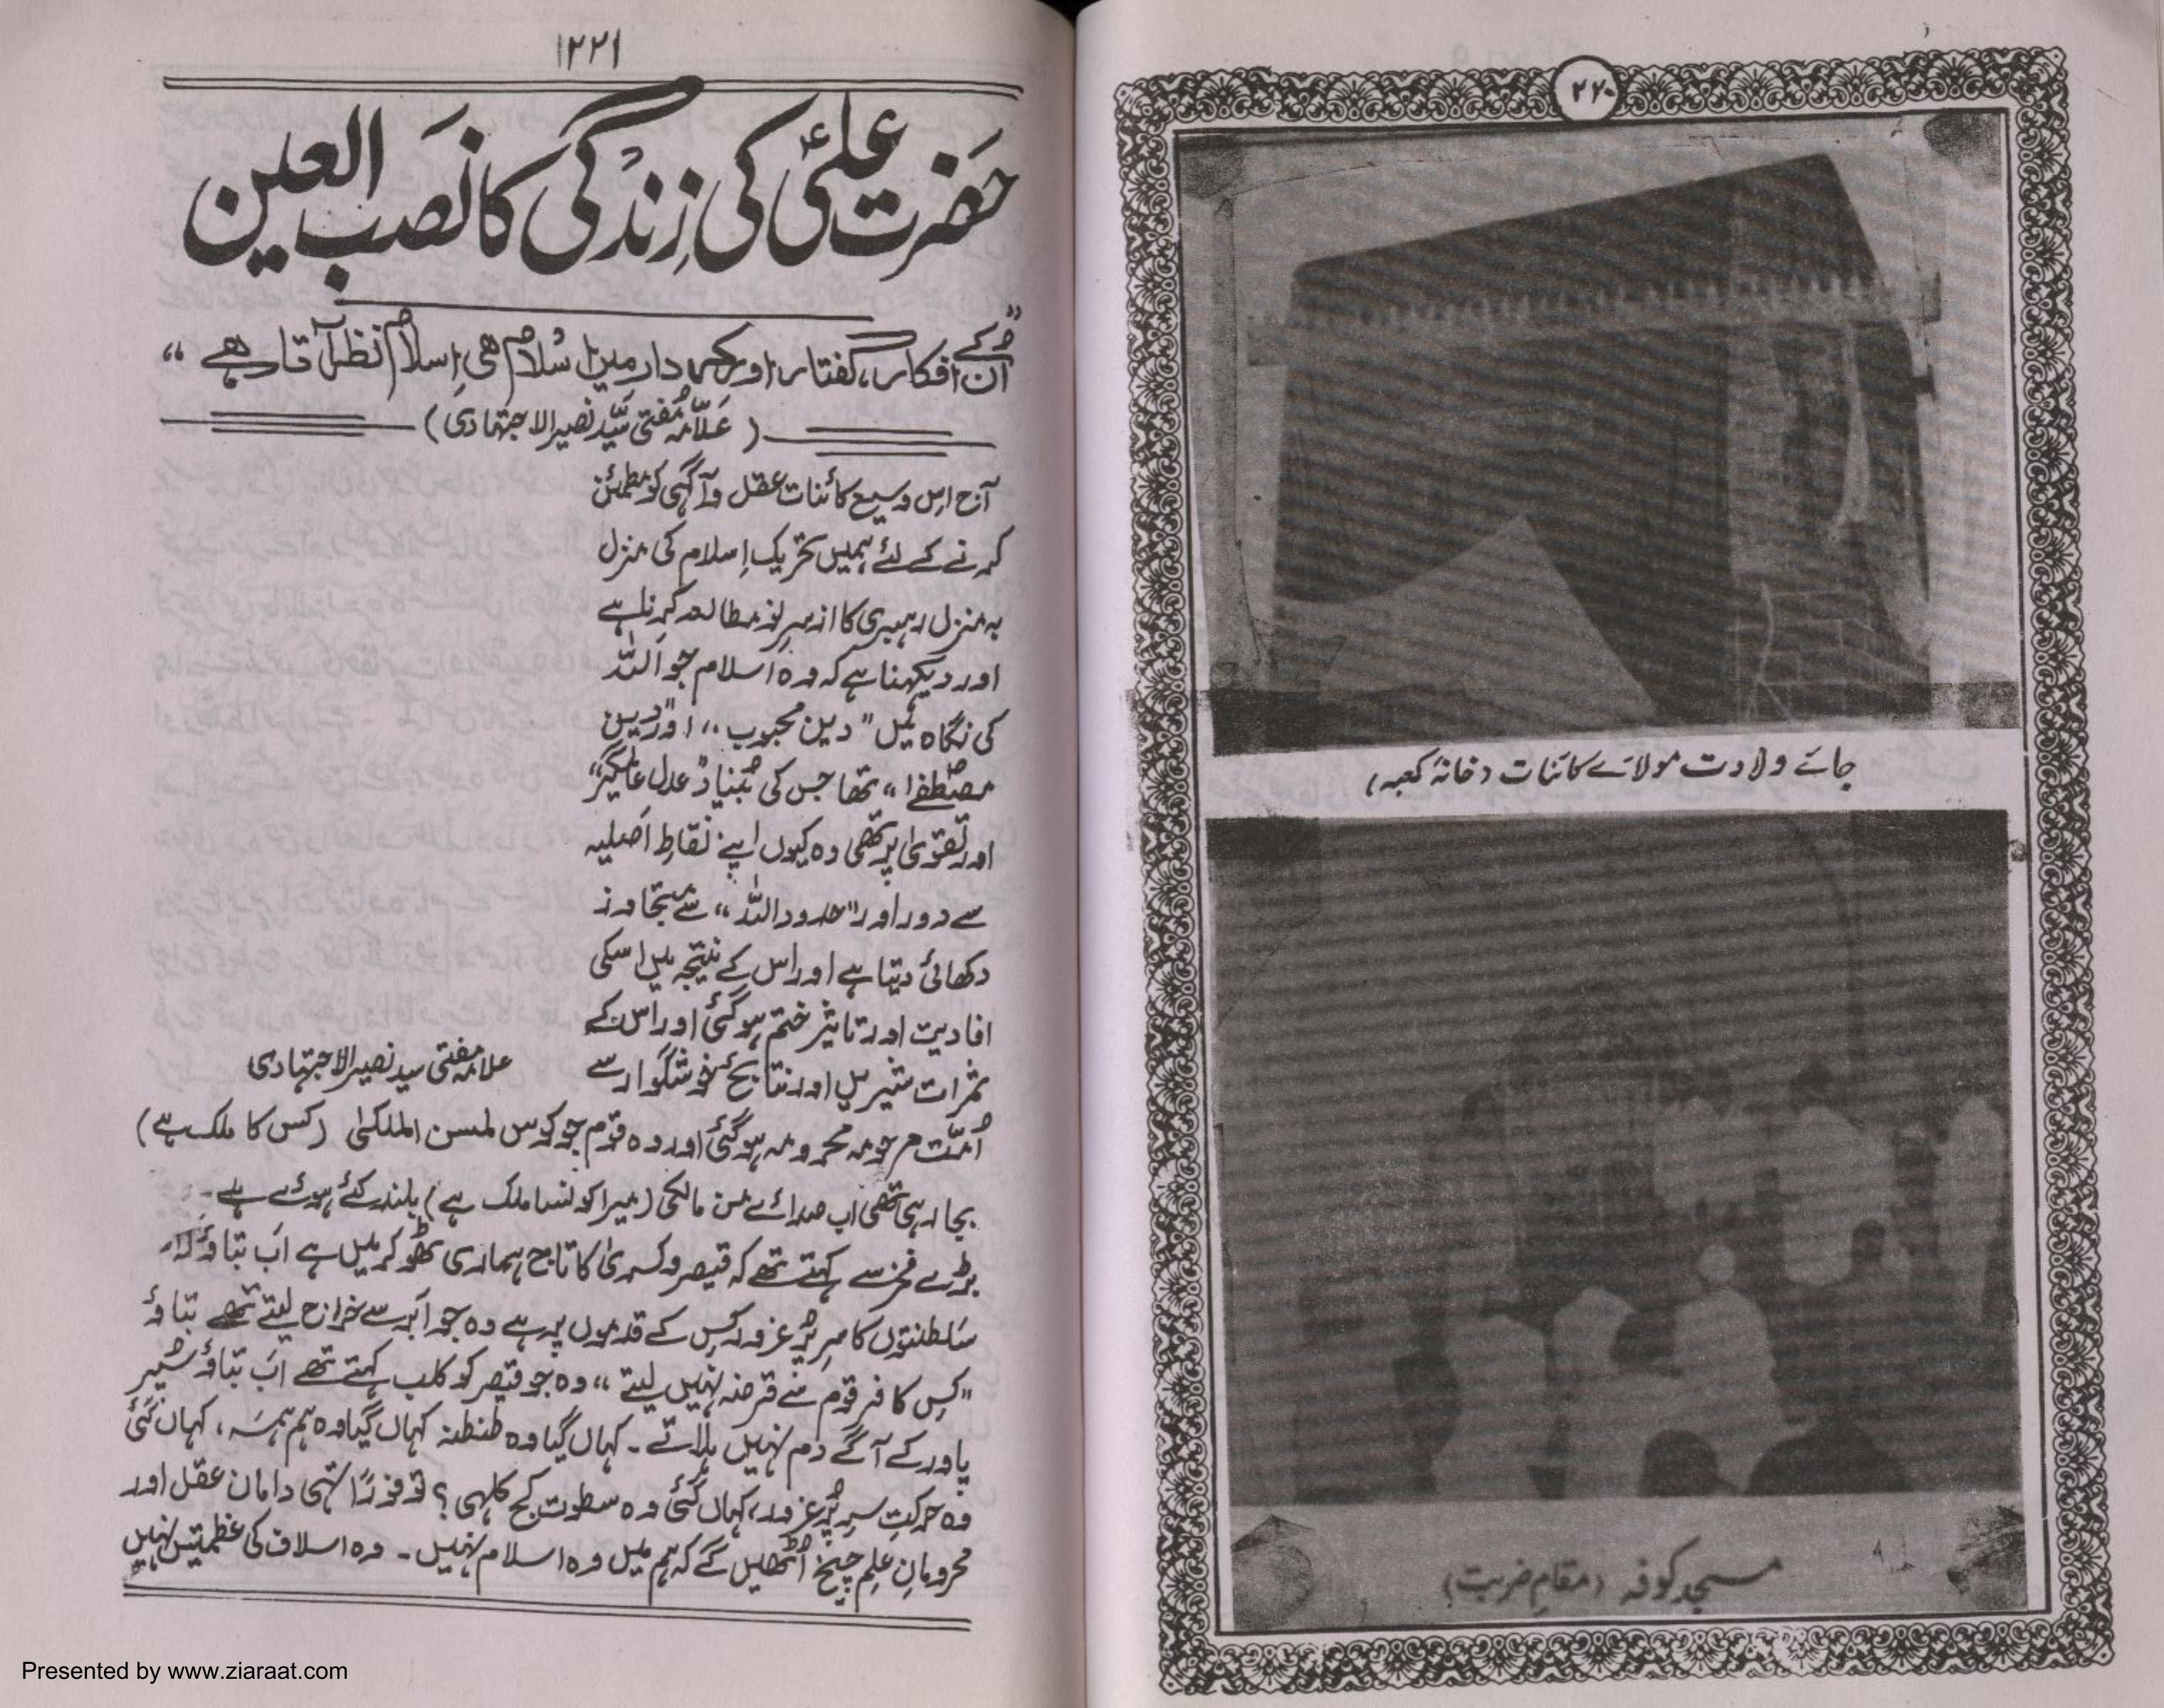 ۲۲۰
جائے ولادت مولائے کائنات (خانۂ کعبہ)
مسجد کوفہ (مقامِ ضربت)
۲۲۱
حضرت علیؑ کی زندگی کا نصب العین
”اُن کے افکار، گفتار اور کردار میں اسلام ہی اِسلام نظر آتا ہے“
(علّامہ مفتی سیّد نصیر الاجتہادی)
آج اس وسیع کائنات عقل و آگہی کو مطمئن
کرنے کے لئے ہمیں تحریک اِسلام کی منزل
بہ منزل رہبری کا از سرِ نو مطالعہ کرنا ہے
اور دیکھنا ہے کہ وہ اسلام جو اللہ
کی نگاہ میں ”دین محبوب“ اور ”دین
مصطفےٰ“ تھا جس کی بنیاد ”عدل عالمگیر“
اور تقویٰ پر تھی وہ کیوں اپنے نقاطِ اصلیہ
سے دور اور ”حدود اللہ“ سے متجاوز
دکھائی دیتا ہے اور اس کے نتیجہ میں اسکی
افادیت اور تاثیر ختم ہو گئی اور اس کے
ثمرات شیریں اور نتائج خوشگوار سے
علامہ مفتی سید نصیر الاجتہادی
اُمّت مرحومہ محروم ہو گئی اور وہ قوم جو کوس لمن الملکی (کس کا ملک ہے)
بجا رہی تھی اب صدائے من مالکی (میرا کونسا ملک ہے) بلند کئے ہوئے ہے۔
بڑے فخر سے کہتے تھے کہ قیصر و کسریٰ کا تاج ہماری ٹھوکر میں ہے اب بتاؤ
سلطنتوں کا سرِ پُر غرور کس کے قدموں پر ہے وہ جو ابر سے خراج لیتے تھے بتاؤ
”کس کافر قوم سے قرضہ نہیں لیتے“ وہ جو قیصر کو کلب کہتے تھے اب بتاؤ سُپر
پاور کے آگے دم نہیں ہلاتے۔ کہاں گیا وہ طنطنہ کہاں گیا وہ ہمہمہ، کہاں گئی
وہ حرکتِ سرِ پُر غرور، کہاں گئی وہ سطوت کج کلہی؟ تو فوراً تہی دامان عقل اور
محرومانِ علم چیخ اُٹھیں گے کہ ہم میں وہ اسلام نہیں۔ وہ اسلاف کی عظمتیں نہیں
Presented by www.ziaraat.com